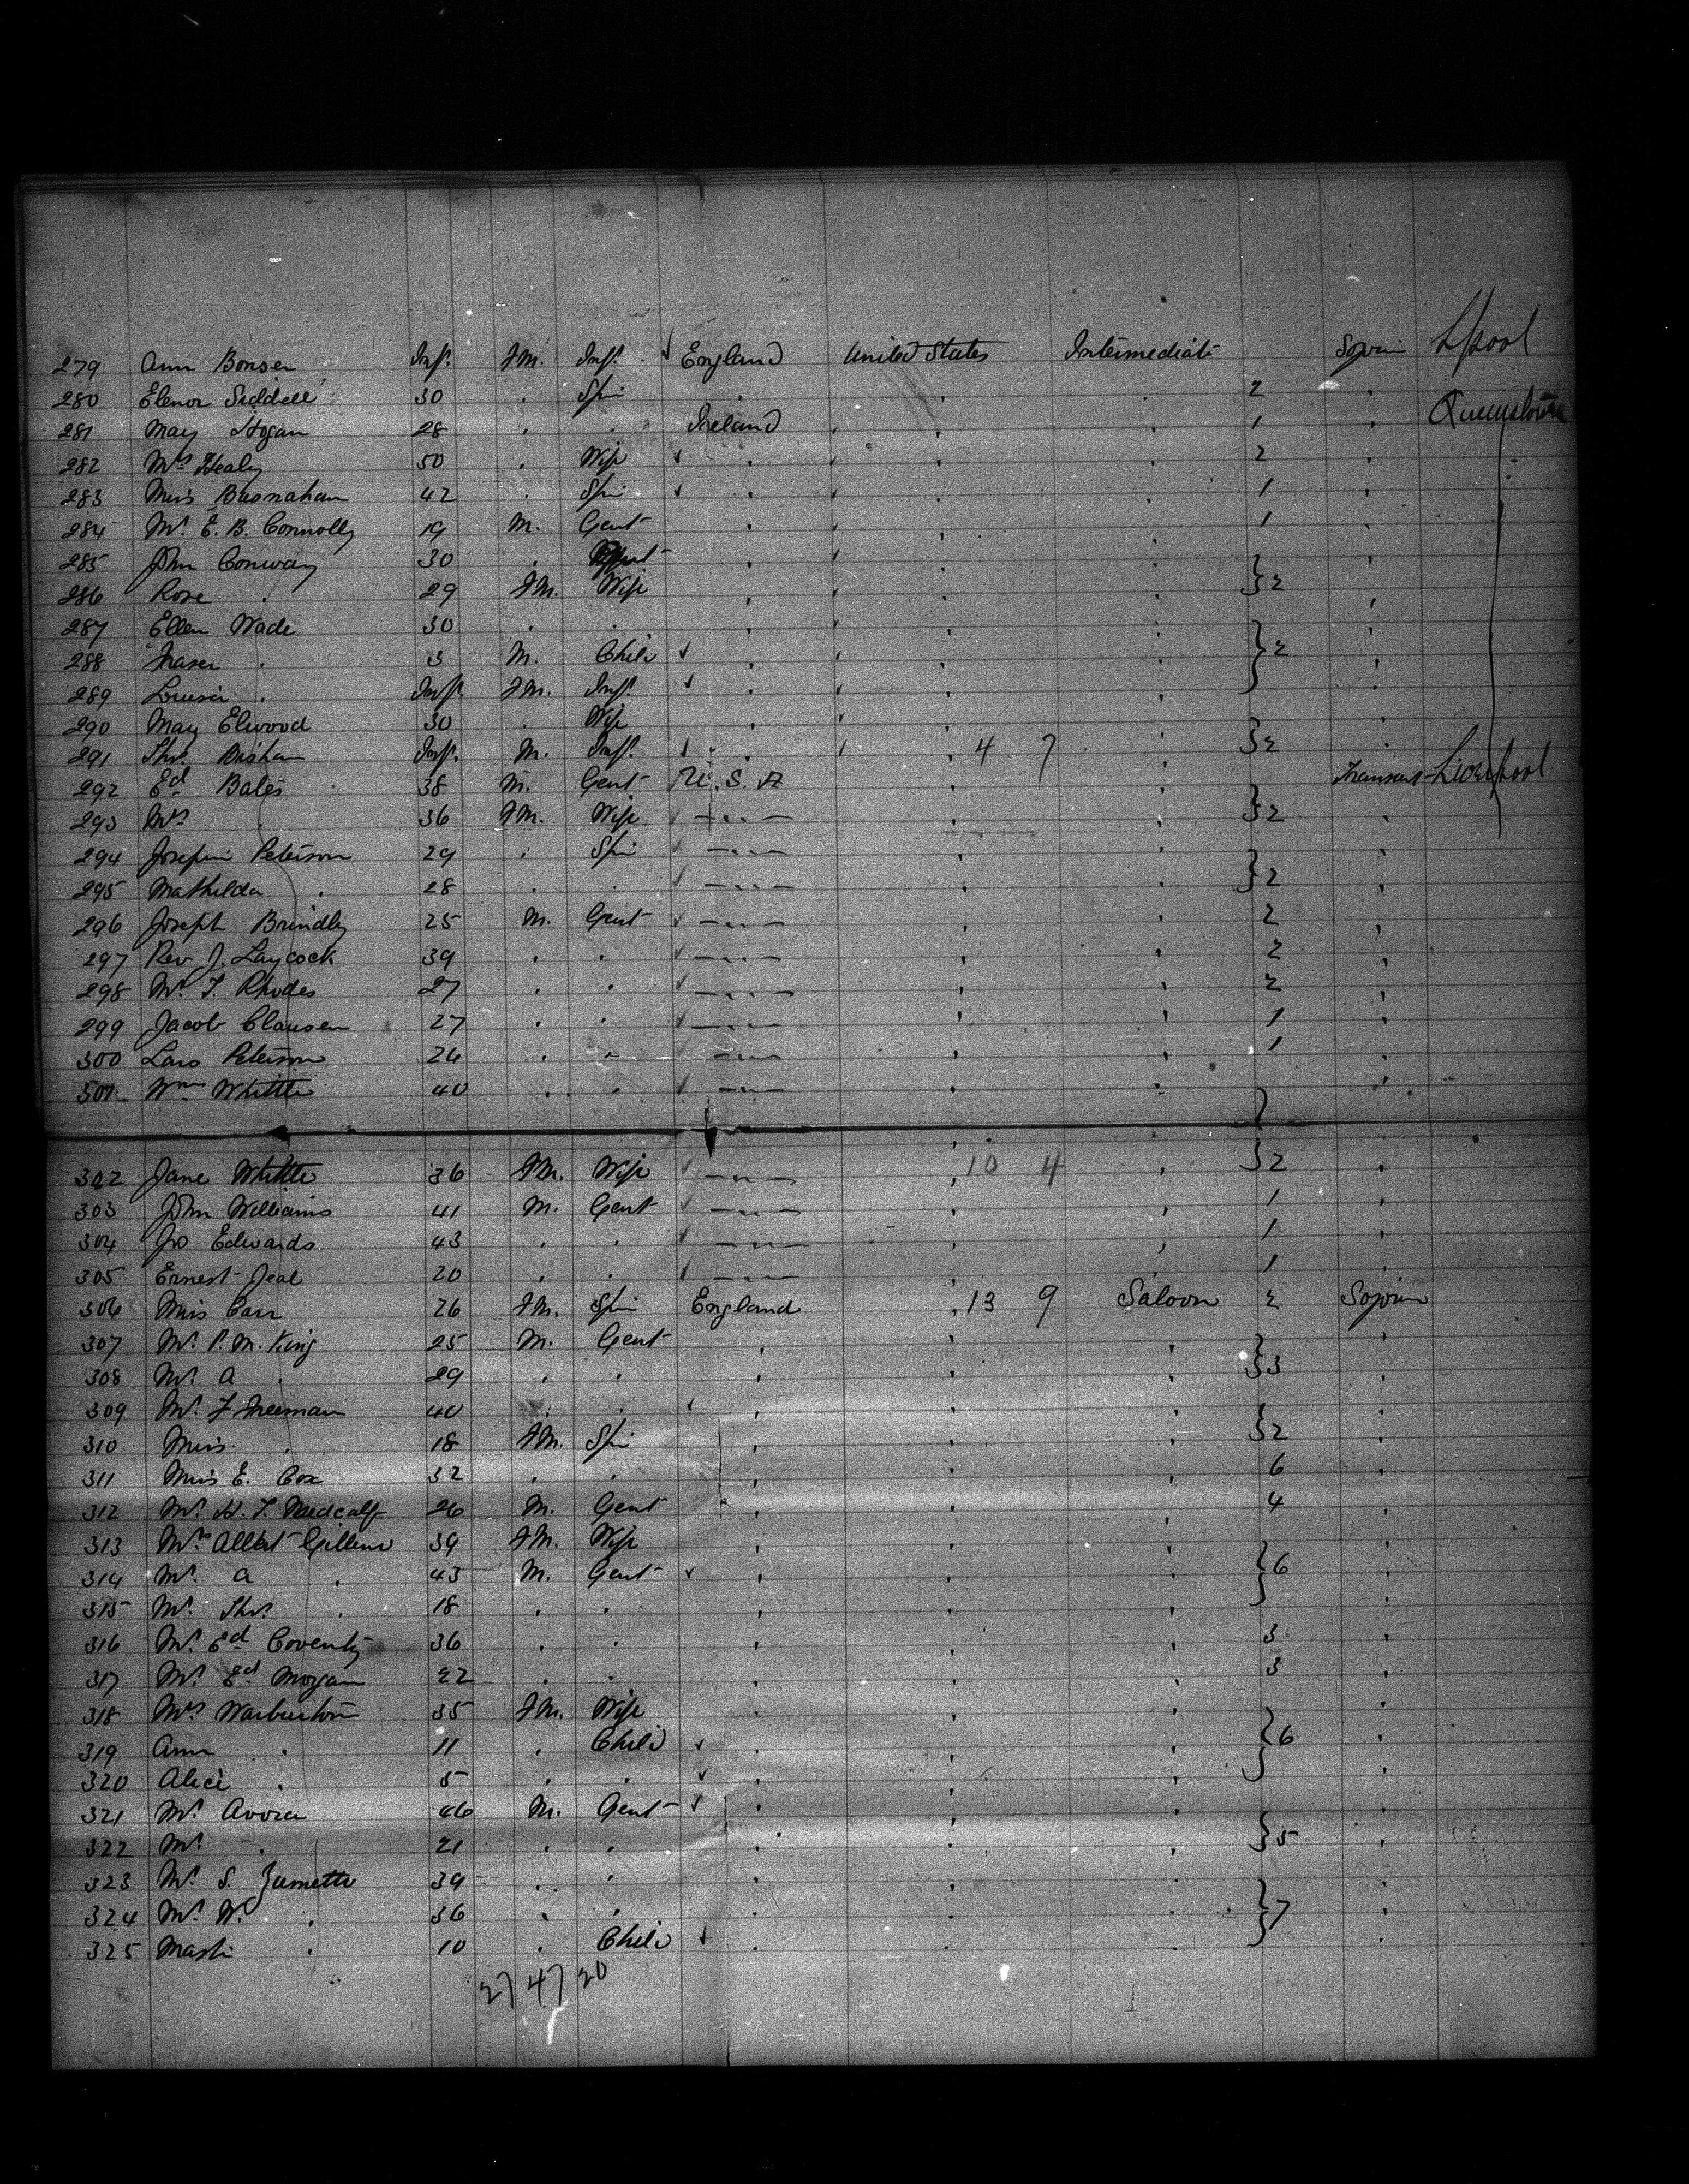 279 Ann Bonser Inft. FM. Inft. ✓ England United States Intermediate Sojourn Lpool
280 Elenor Siddell 30 " Spin " " " 2 " Queenstown
281 May Hogan 28 " " Ireland " " 1 "
282 Mrs Healy 50 " Wife ✓ " " " 2 "
283 Miss 42 " Spin ✓ " " " 1 "
284 Mr. E. B. Connolly 19 M. Gent " " " 1 "
285 John Conway 30 " " " "
286 Rose " 29 FM. Wife " " " } 2 "
287 Ellen Wade 30 " " " " " "
288 Fraser " 3 M. Child ✓ " " " } 2 "
289 Louisa " Inft. FM. Inft. ✓ " " "
290 May Elwood 30 " Wife " " " "
291 Thos. Inft. M. Inft. ✓ " " 4 7 " } 2 "
292 Ed Bates 38 M. Gent U.S.A " " Transient Liverpool
293 Mrs " 36 FM. Wife ✓ — " — " " } 2 "
294 Josephin Peterson 29 " Spin ✓ — " — " " "
295 Mathilda " 28 " " ✓ — " — " " } 2 "
296 Joseph Brindley 25 M. Gent ✓ — " — " " 2 "
297 Rev J. Laycock 39 " " ✓ — " — " " 2 "
298 Mr. T. Rhodes 27 " " ✓ — " — " " 2 "
299 Jacob Clausen 27 " " ✓ — " — " " 1 "
300 Lars Peterson 26 " " ✓ — " — " " 1 "
301 Wm Whittle 40 " " ✓ — " — " " "
302 Jane Whittle 36 FM. Wife ✓ — " — " 10 4 " } 2 "
303 John Williams 41 M. Gent ✓ — " — " " 1 "
304 Jno Edwards 43 " " ✓ — " — " " 1 "
305 Ernest Jeal 20 " " ✓ — " — " " 1 "
306 Miss Carr 26 FM. Spin England " 13 9 Saloon 2 Sojourn
307 Mr. P. M. King 25 M. Gent " " " "
308 Mr. A " 29 " " " " " } 3 "
309 Mr. F Freeman 40 " " ✓ " " " "
310 Miss " 18 FM. Spin " " " } 2 "
311 Miss E. Cox 32 " " " " " 6 "
312 Mr. H. T. Medcalf 26 M. Gent " " " 4 "
313 Mrs Albert 39 FM. Wife " " " "
314 Mr. A " 43 M. Gent ✓ " " " } 6 "
315 Mr. Thos. " 18 " " " " " "
316 Mr. Ed Coventry 36 " " " " " 3 "
317 Mr. Ed Morgan 22 " " " " " 3 "
318 Mrs Warburton 35 FM. Wife " " " "
319 Ann " 11 " Child ✓ " " " } 6 "
320 Alice " 5 " " ✓ " " " "
321 Mr. 46 M. Gent ✓ " " " "
322 Mr. " 21 " " " " " } 5 "
323 Mr. S. 39 " " " " " "
324 Mr. W. " 36 " " " " " } 7 "
325 Mastr " 10 " Child ✓ " " " "
27 47 20